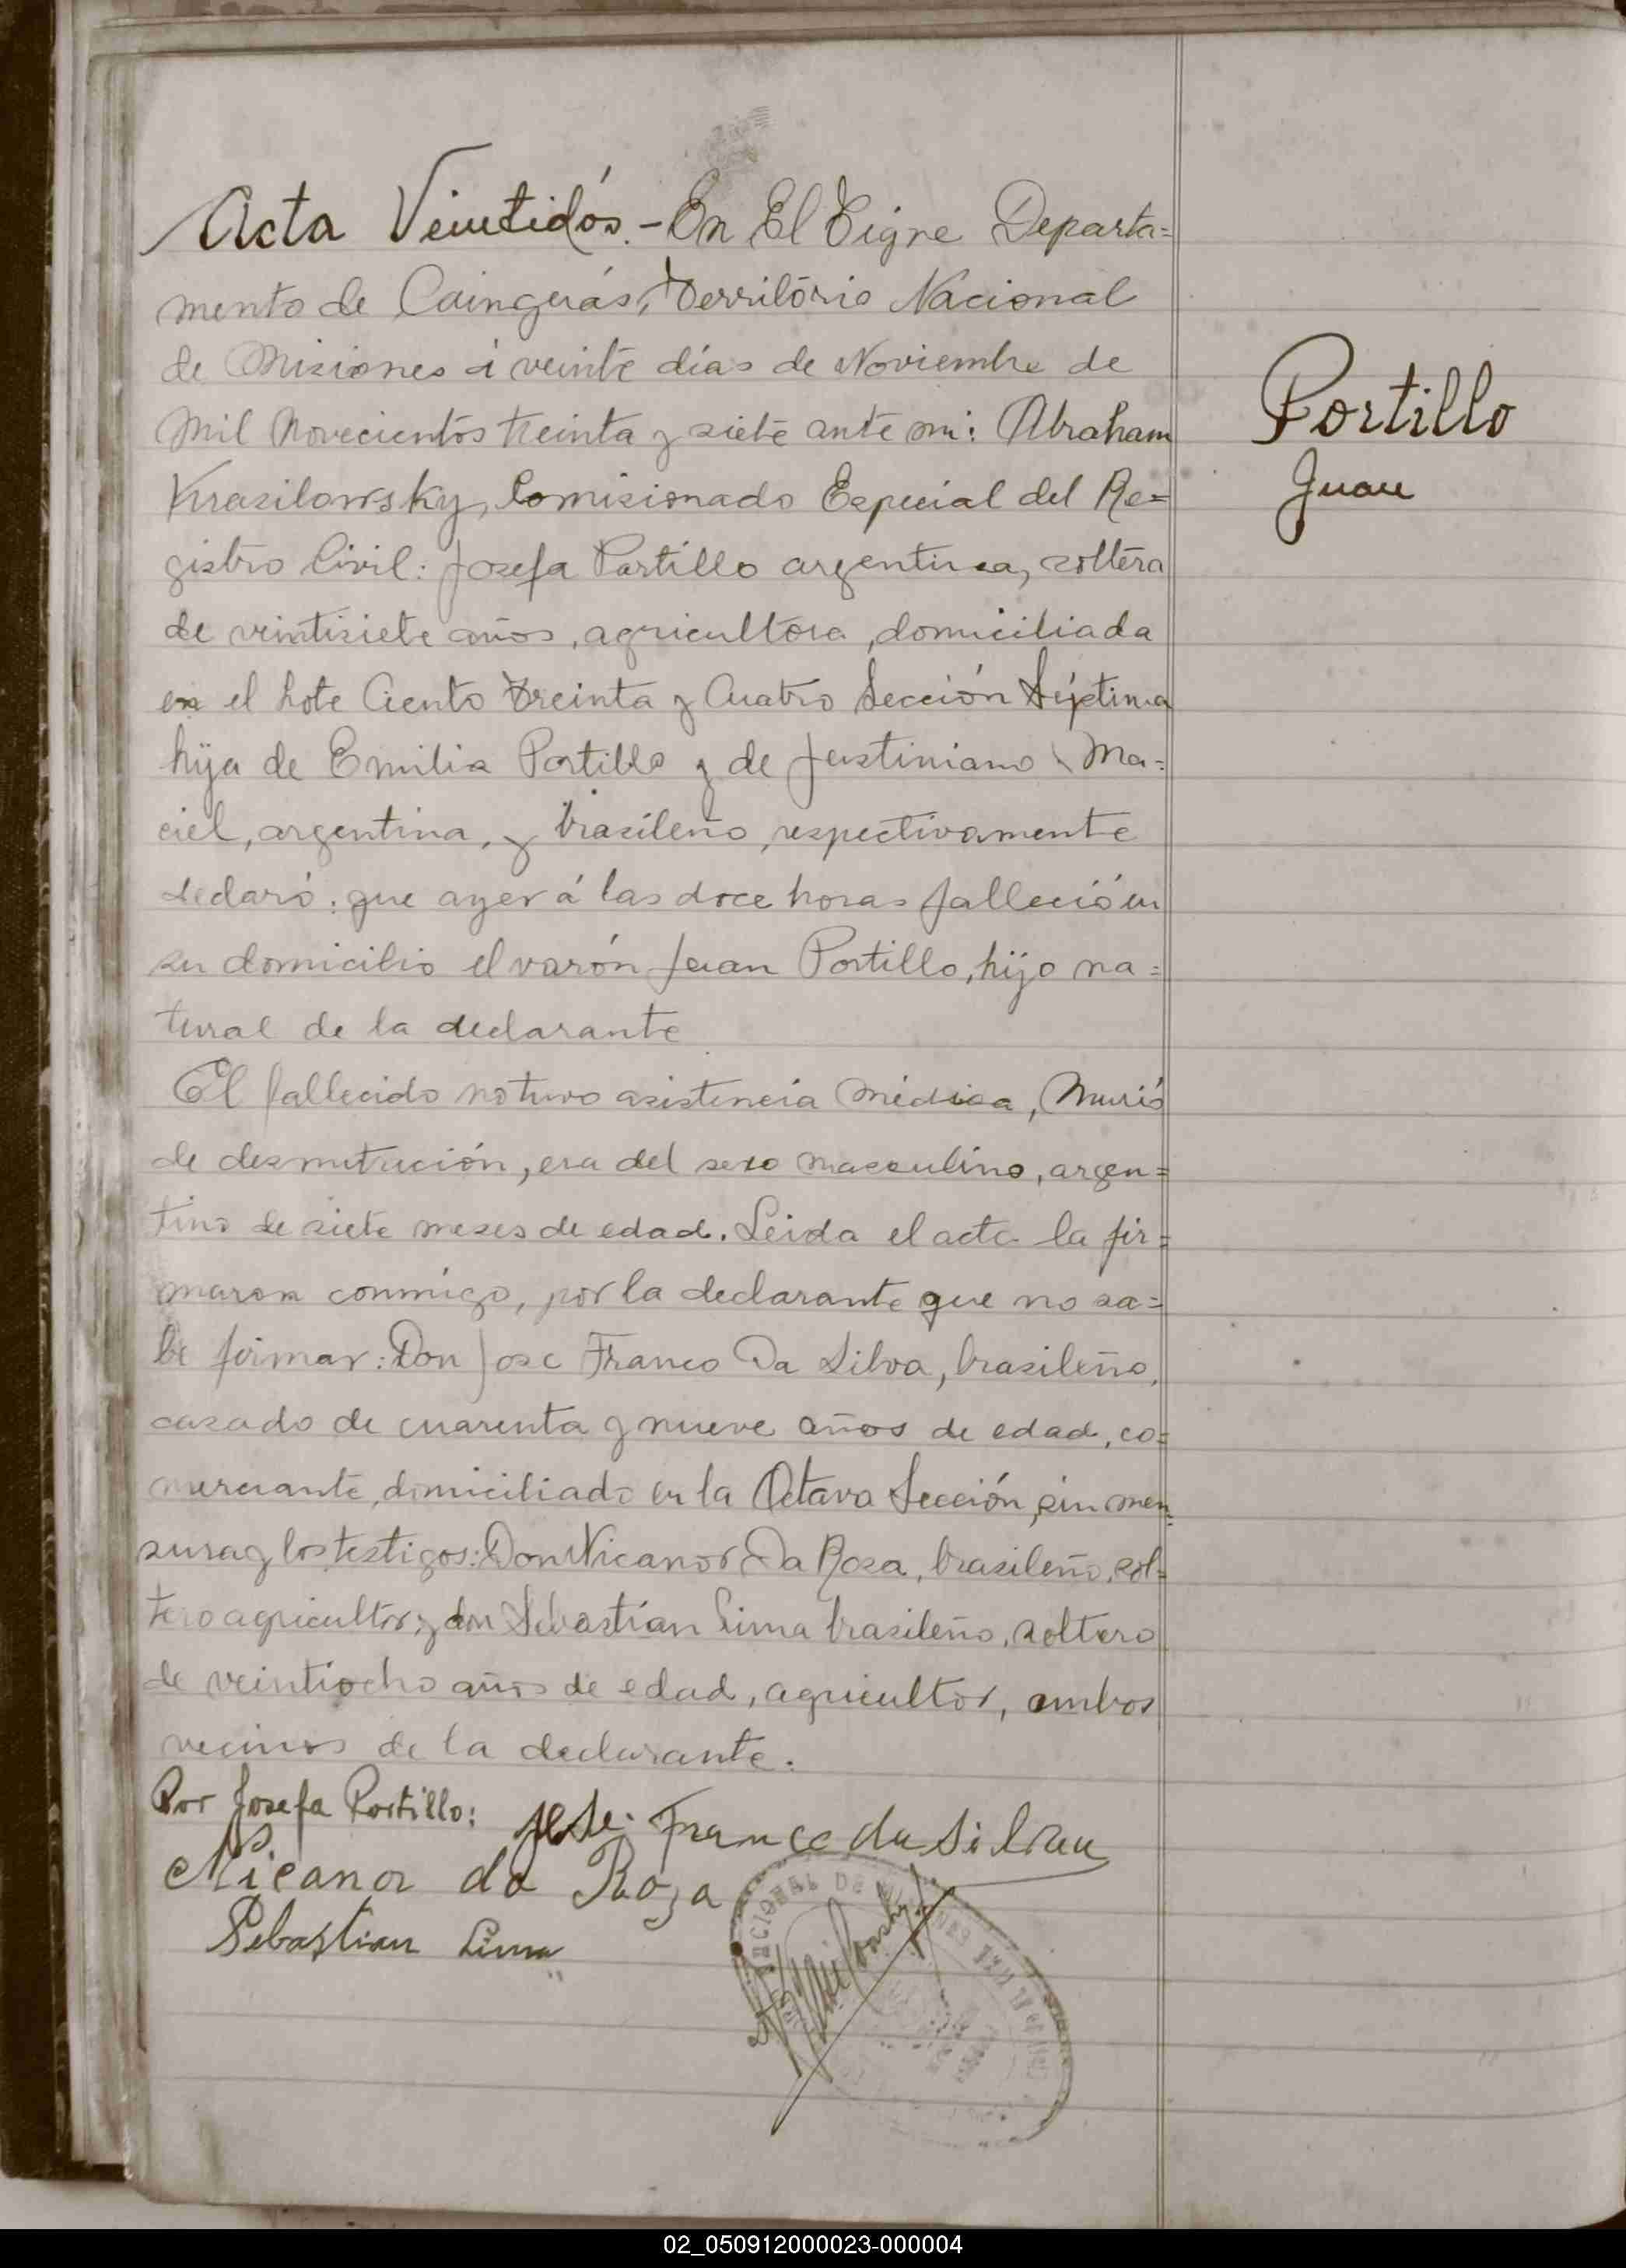 Acta Veintidós.- En El Tigre Departa=
mento de Cainguás, Territorio Nacional
de Misiones á veinte días de Noviembre de
Mil Novecientos treinta y siete ante mi: Abraham
Krasilowsky, Comisionado Especial del Re=
gistro Civil: Josefa Portillo argentina, soltera
de veintisiete años, agricultora, domiciliada
en el Lote Ciento Treinta y Cuatro Sección Séptima
hija de Emilia Portillo y de Justiniano Ma=
ciel, argentina, y brasileño, respectivamente
declaró: que ayer á las doce horas falleció en
su domicilio el varón Juan Portillo, hijo na=
tural de la declarante
El fallecido no tuvo asistencia médica, murió
de desnutrición, era del sexo masculino, argen=
tino de siete meses de edad. Leida el acta la fir=
maron conmigo, por la declarante que no sa=
be firmar: Don Jose Franco Da Silva, brasileño,
casado de cuarenta y nueve años de edad, co=
merciante, domiciliado en la Octava Sección, sin men=
sura y los testigos: Don Nicanor Da Rosa, brasileño, sol=
tero agricultor; y don Sebastián Lima brasileño, soltero
de veintiocho años de edad, agricultor, ambos
vecinos de la declarante.
Por Josefa Portillo: Jose Franco da Silva
Nicanor da Roza
Sebastian Lima
Portillo
Juan
02_050912000023-000004